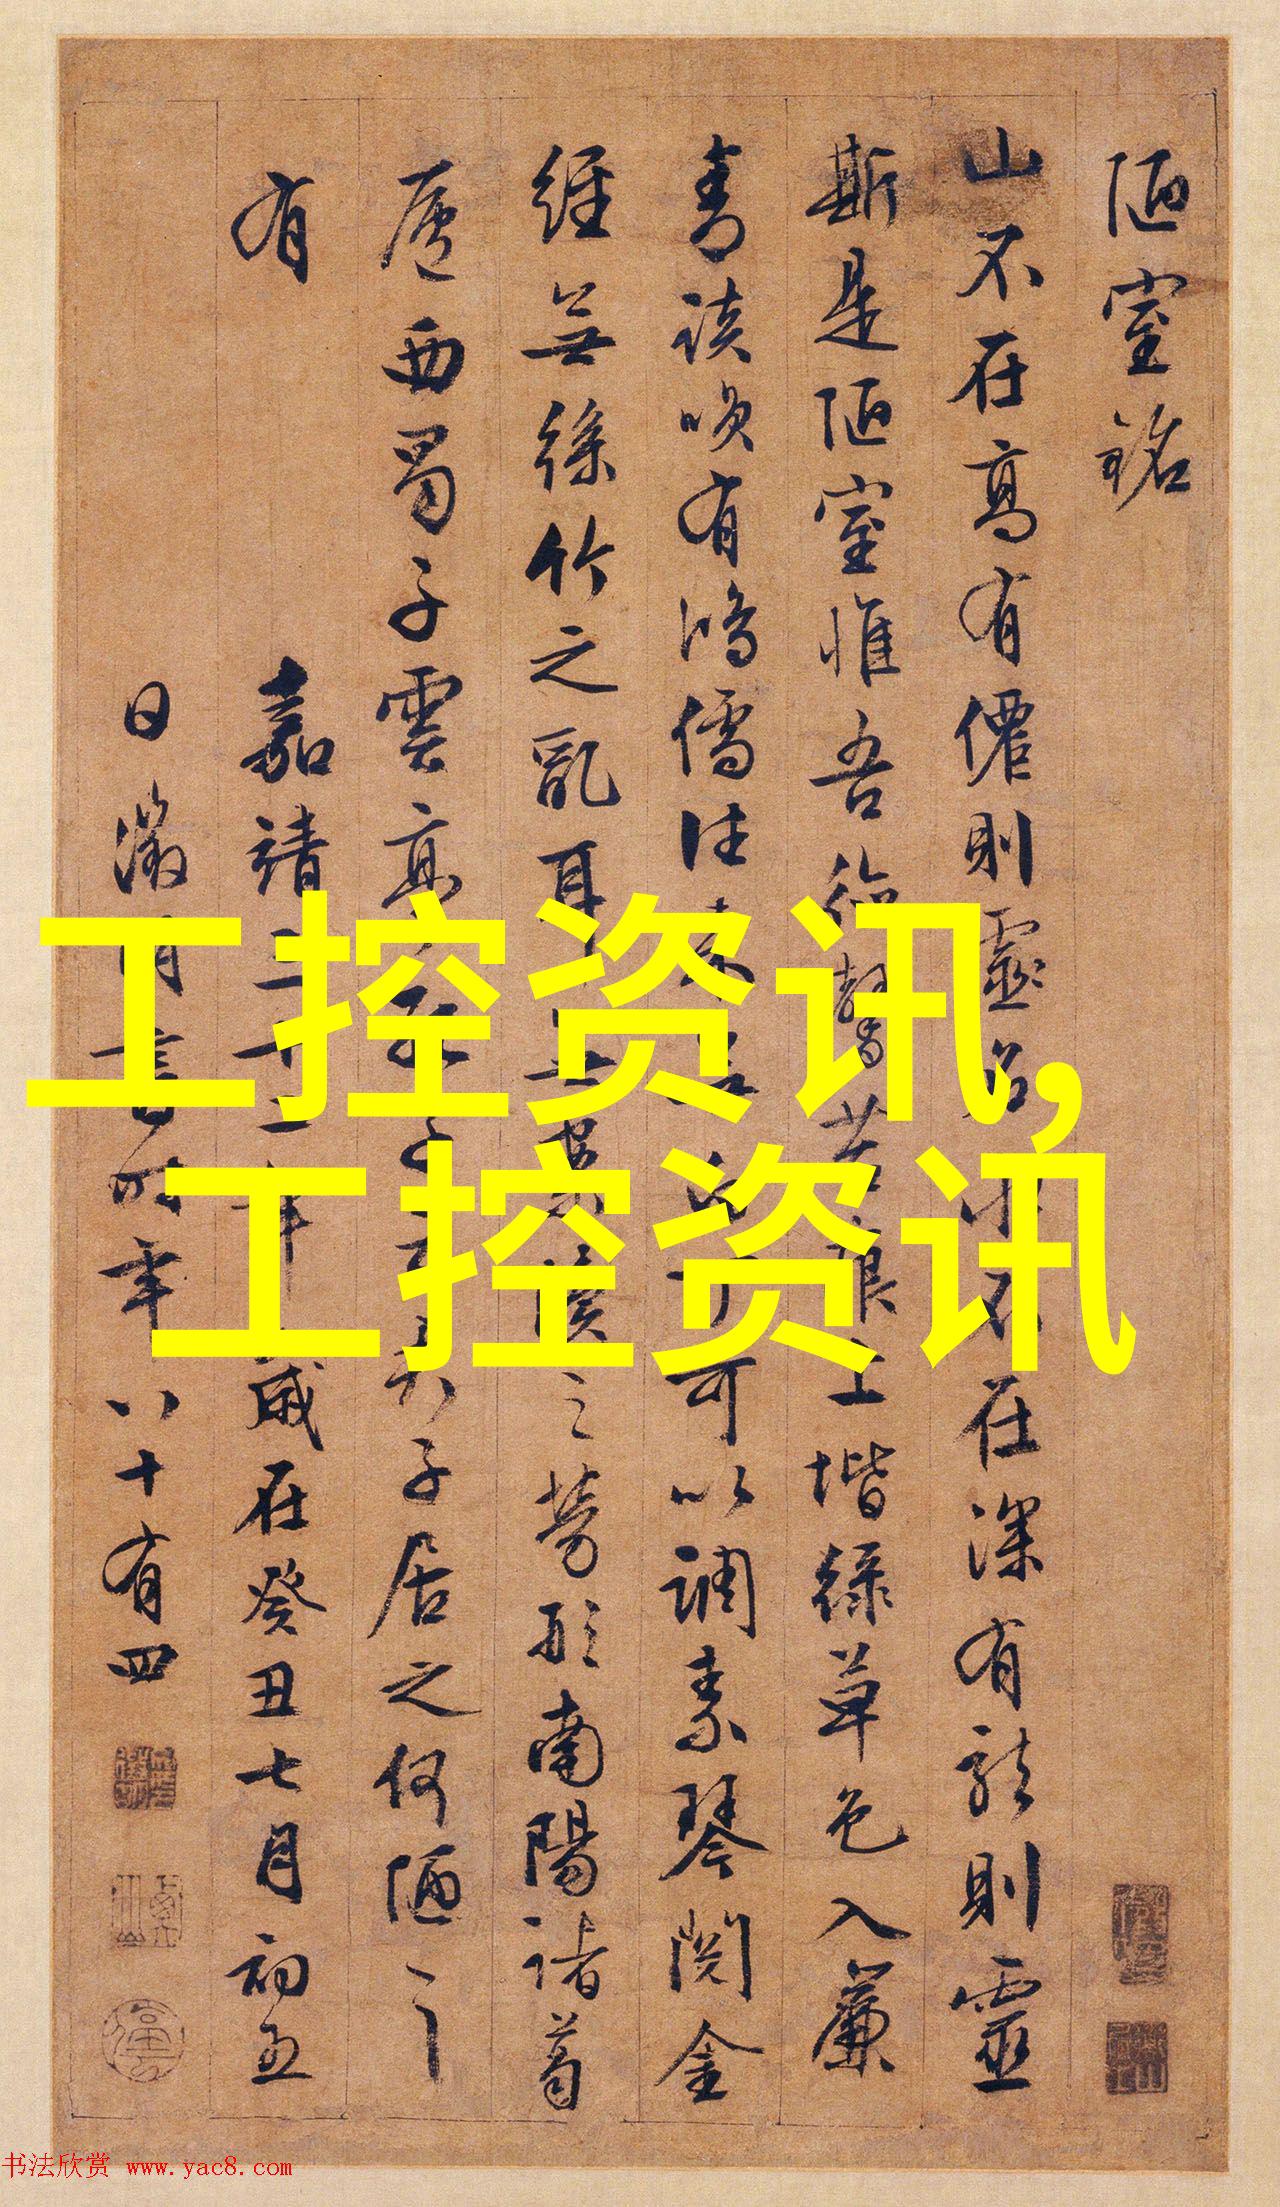 陋室銘
山不在高有僊則靈名水不在深有龍則靈
斯是陋室惟吾德馨苔痕上堦綠草色入簾
青談唉有鴻儒往來無白丁可以調素琴閱金
經無絲竹之亂耳無案牘之勞形南陽諸葛
廬西蜀子雲亭孔子云孔子居之何陋之
有
嘉靖三十二年歲在癸丑七月初五
日徵明書時年八十有四
工控资讯,
工控资讯
书法欣赏 www.yac8.com